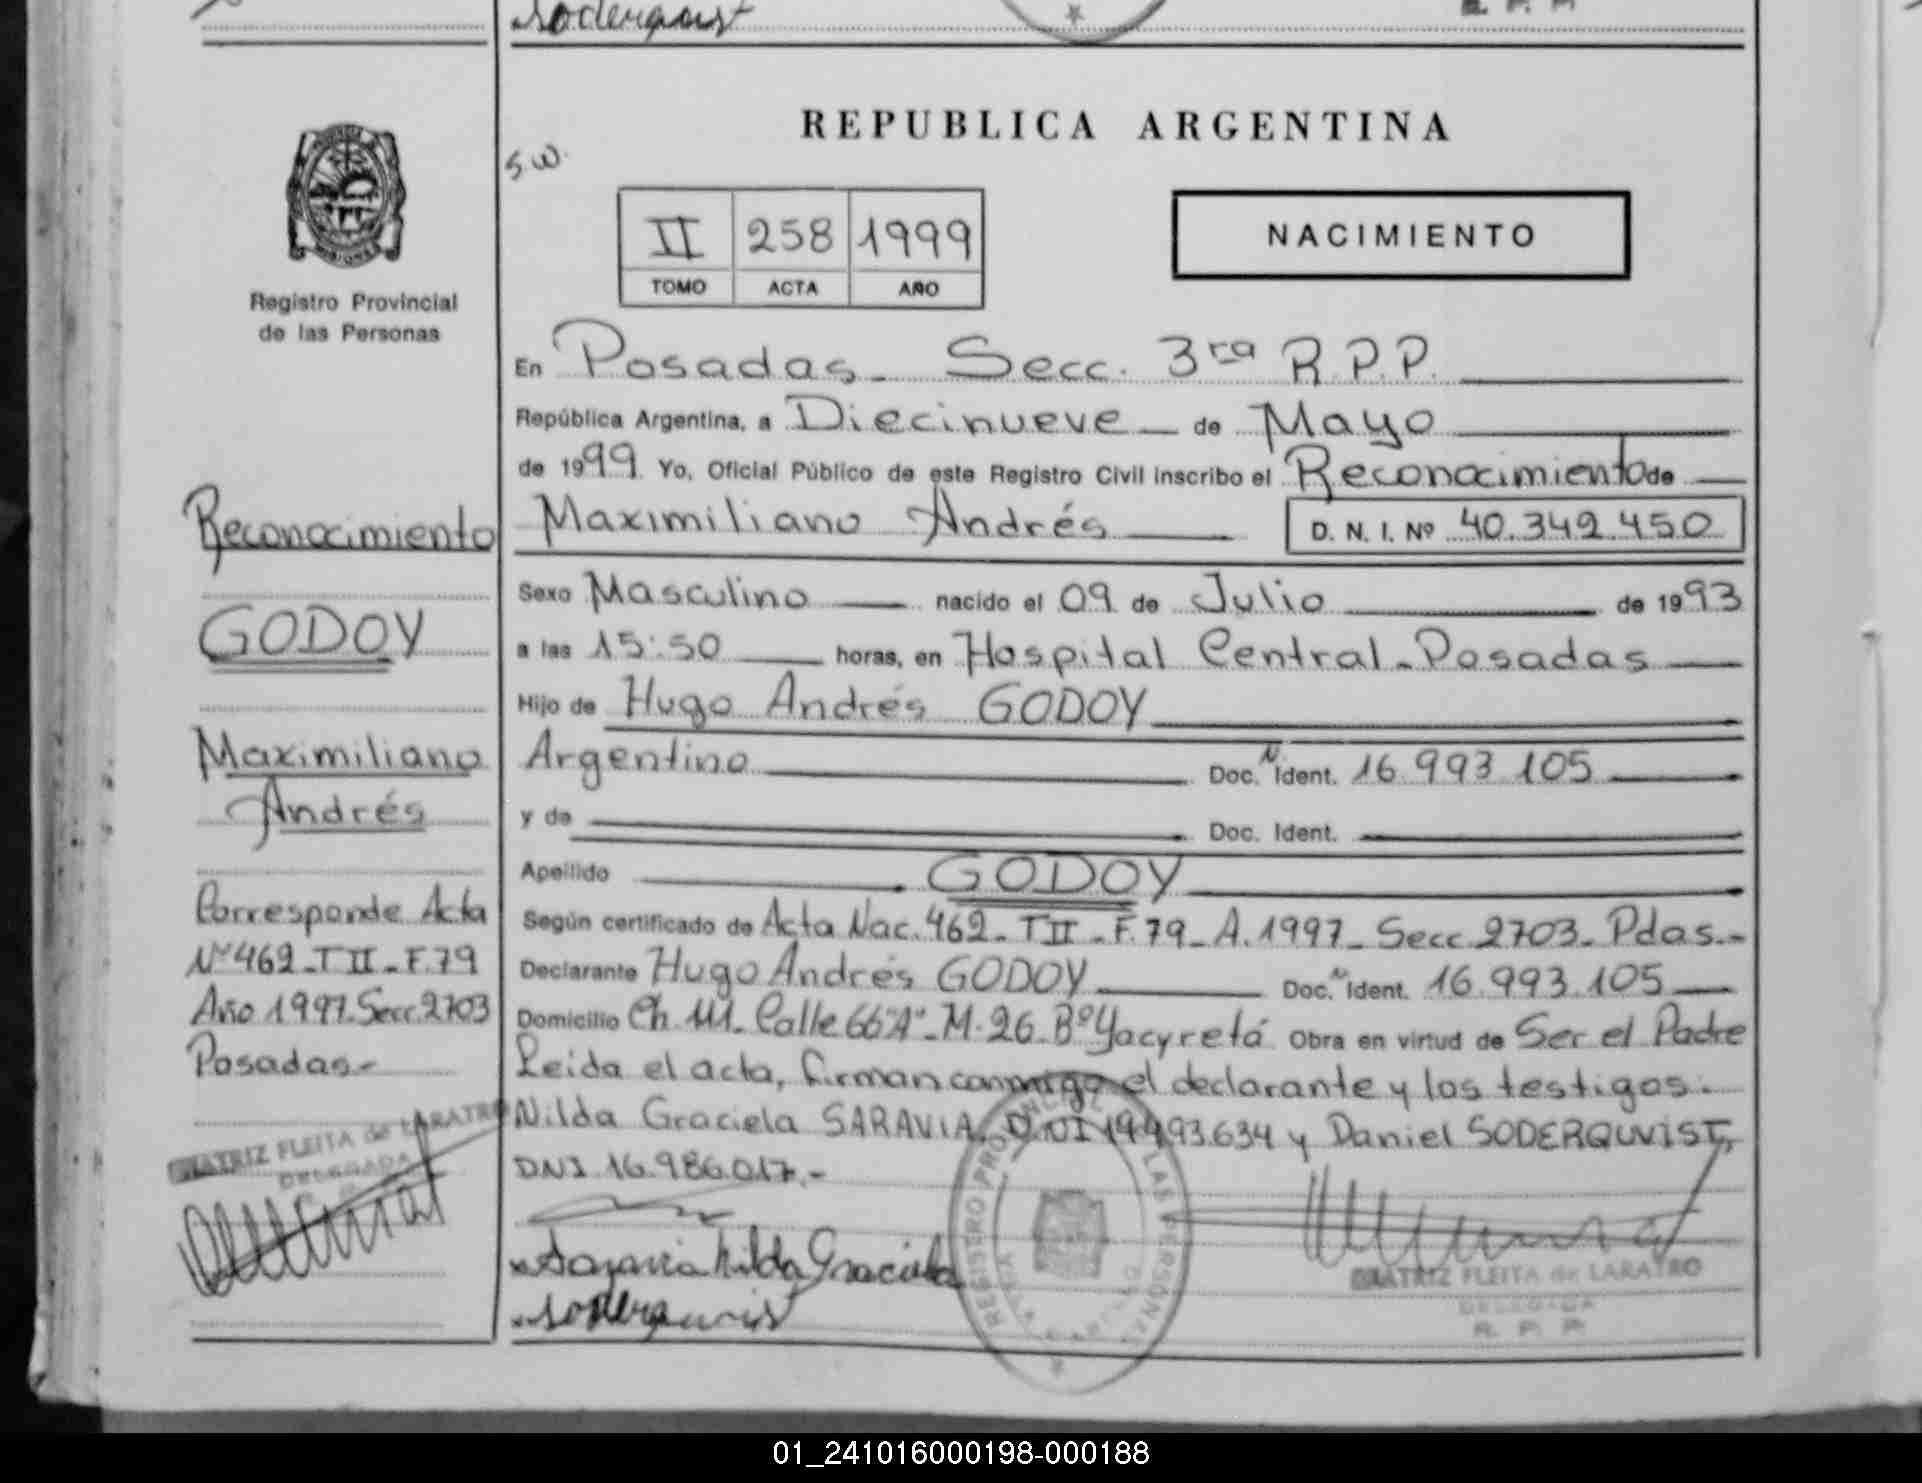 Soderquist
REPUBLICA ARGENTINA
S.W.
II 258 1999
TOMO ACTA AÑO
NACIMIENTO
Registro Provincial
de las Personas
En Posadas - Secc. 3ra R.P.P.
República Argentina, a Diecinueve de Mayo
de 1999. Yo, Oficial Público de este Registro Civil inscribo el Reconocimiento de
Maximiliano Andrés D. N. I. Nº 40.342.450
Sexo Masculino nacido el 09 de Julio de 1993
a las 15:50 horas, en Hospital Central - Posadas
Hijo de Hugo Andrés GODOY
Argentino Doc. N Ident. 16.993.105
y de Doc. Ident.
Apellido GODOY
Según certificado de Acta Nac. 462 - T II - F. 79 - A. 1997 - Secc. 2703 - Pdas.-
Declarante Hugo Andrés GODOY Doc. N Ident. 16.993.105
Domicilio Ch. 111 - Calle 66 "A" - M. 26. Bº Yacyretá Obra en virtud de Ser el Padre
Leida el acta, firman conmigo el declarante y los testigos:
Nilda Graciela SARAVIA, DNI y Daniel SODERQUVIST,
DNI 16.986.017.-
Saravia Nilda Graciela
Soderquvist
BEATRIZ FLEITA de LARATRO
DELEGADA
R. P. P.
Reconocimiento
GODOY
Maximiliano
Andrés
Corresponde Acta
Nº 462 - T II - F. 79
Año 1997. Secc. 2703
Posadas -
BEATRIZ FLEITA de LARATRO
DELEGADA
01_241016000198-000188